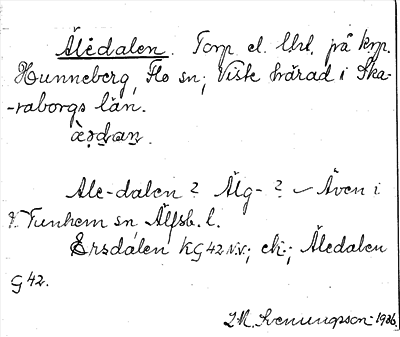 Äledalen. Torp el. lht. på krp.
Hunneberg, Flo sn; Viste härad i Ska-
-raborgs län.
Ale-dalen? Älg-? – Även i
V. Tunhem sn Älfsb. l.
Ersdalen KG42 NV; ek; Äledalen
G42.
Svenungsson 1936.